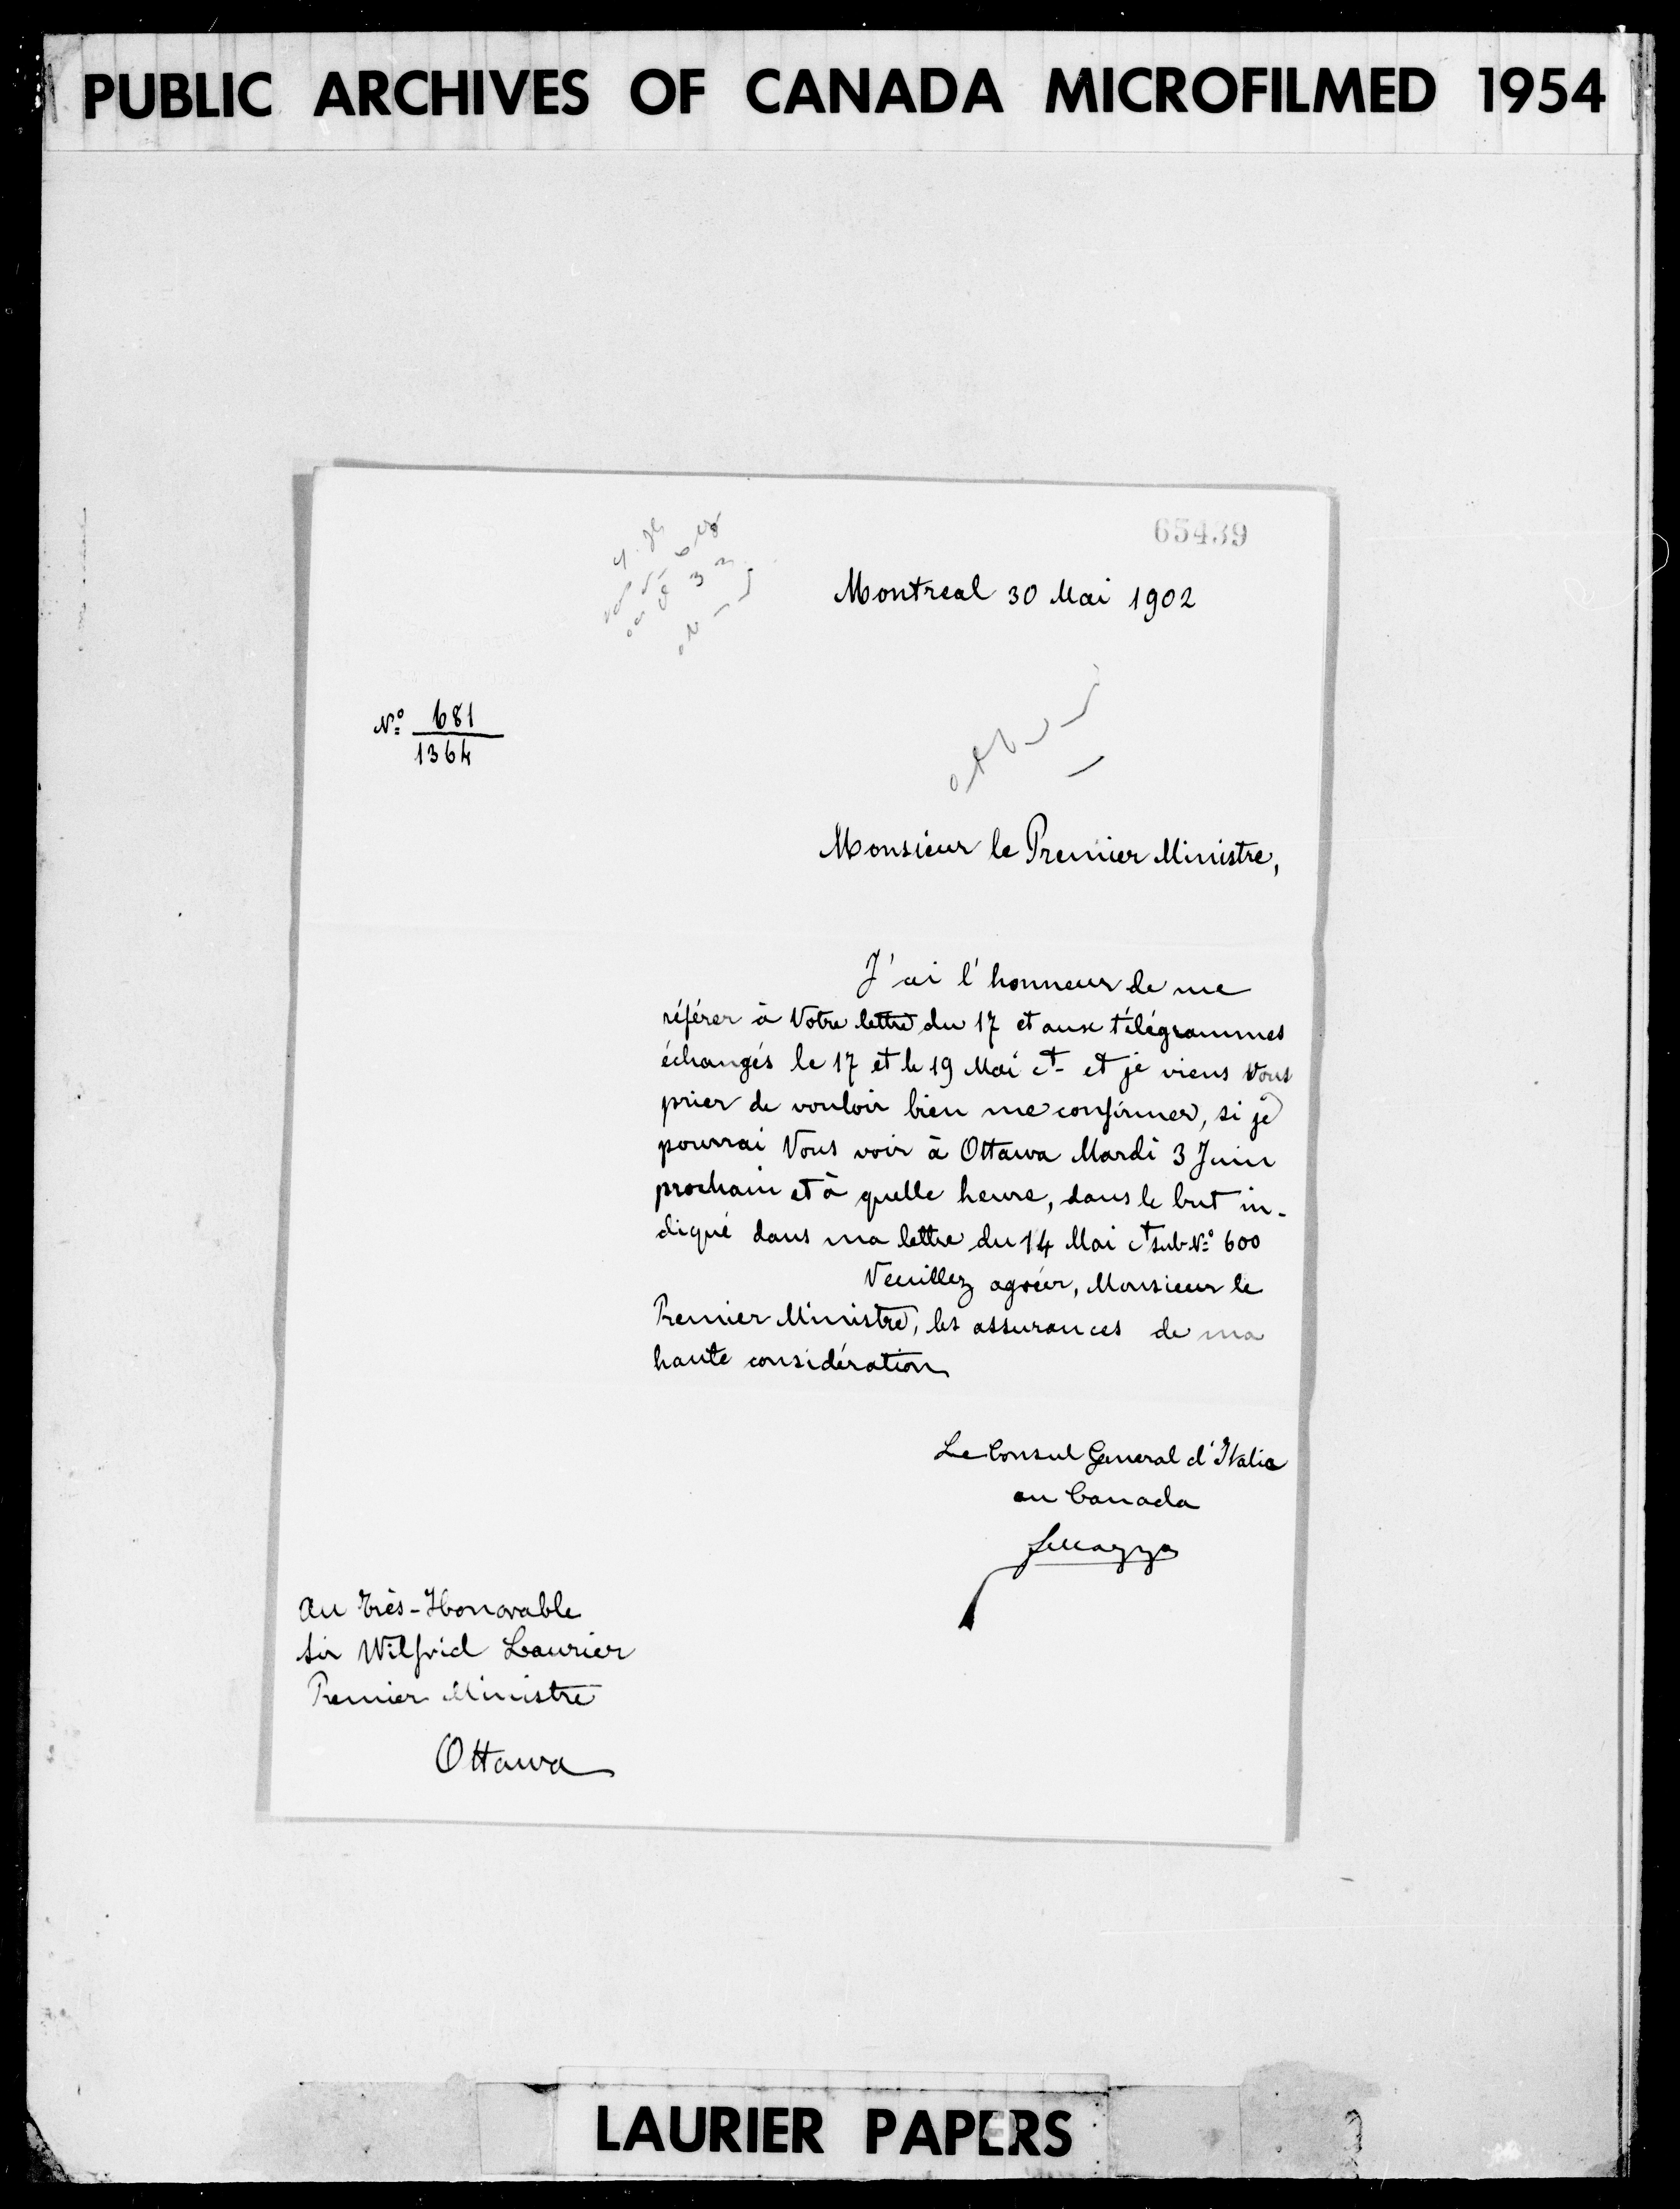 PUBLIC ARCHIVES OF CANADA MICROFILMED 1954
65439
Montreal 30 Mai 1902
Nº 681
1364
Monsieur le Premier Ministre,
J'ai l'honneur de me
référer à Votre lettre du 17 et aux télégrammes
échangés le 17 et le 19 Mai ct et je viens Vous
prier de vouloir bien me confirmer, si je
pourrai Vous voir à Ottawa Mardi 3 Juin
prochain et à quelle heure, dans le but in-
diqué dans ma lettre du 14 Mai ct sub Nº 600
Veuillez agréer, Monsieur le
Premier Ministre, les assurances de ma
haute considération
Le Consul General d'Italie
au Canada
Au Très-Honorable
Sir Wilfrid Laurier
Premier Ministre
Ottawa
LAURIER PAPERS